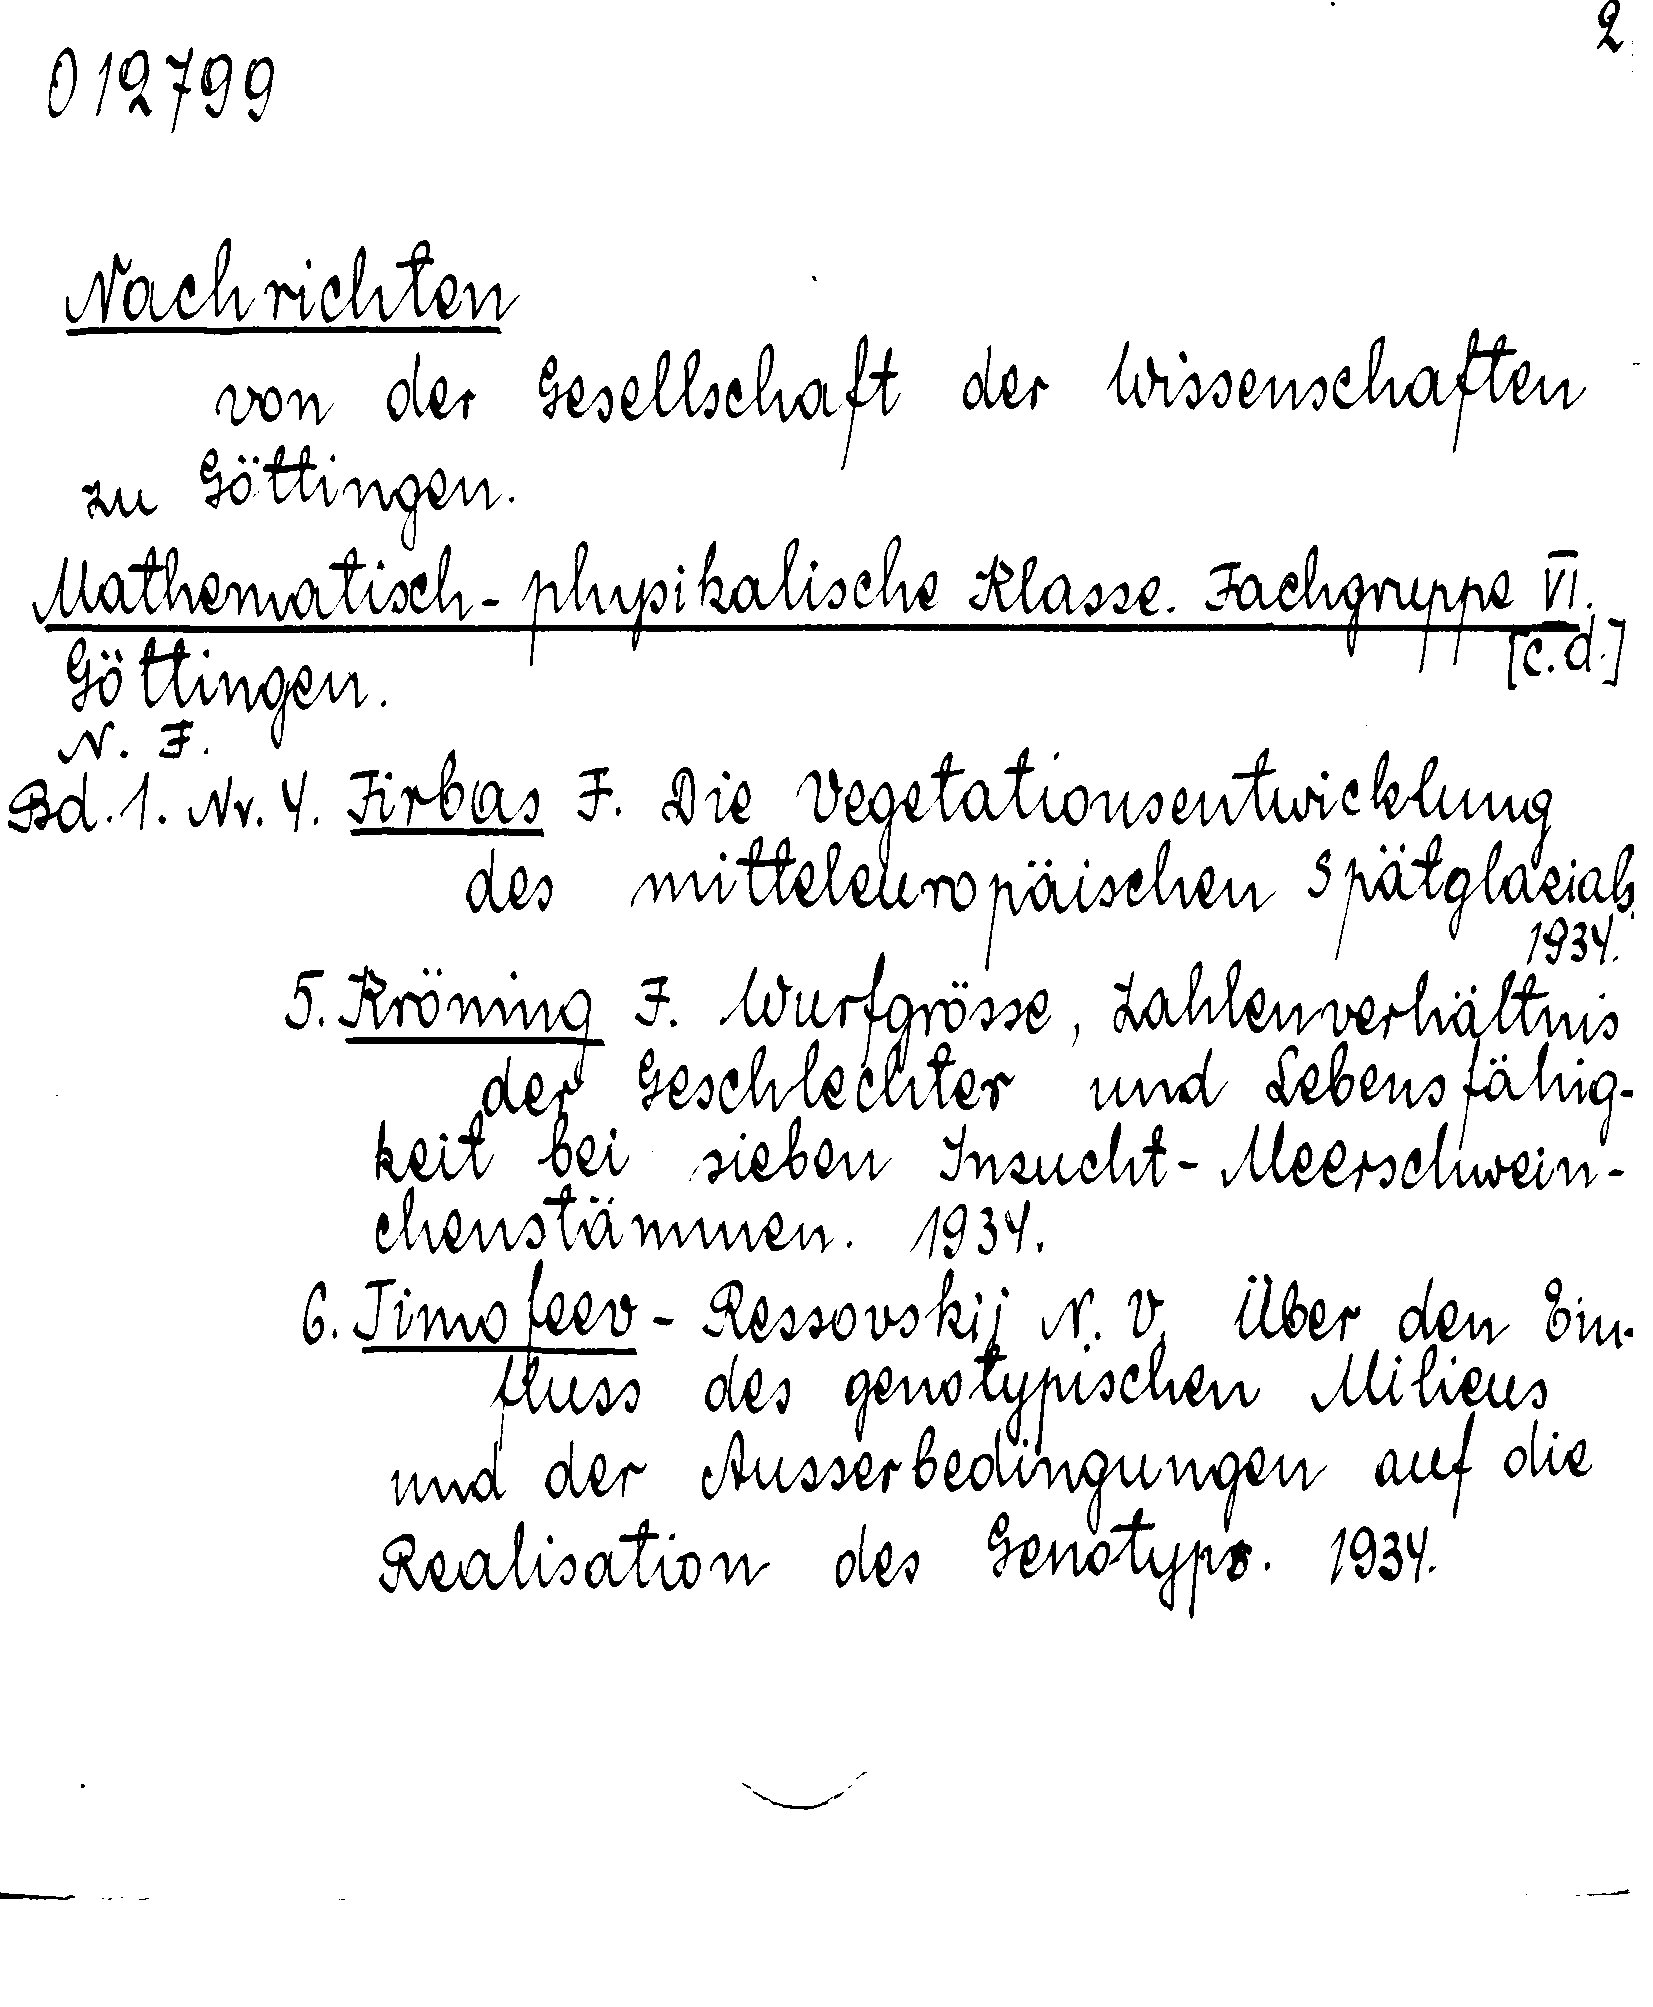 2
012799
Nachrichten
von der Gesellschaft der Wissenschaften
zu Göttingen.
Mathematisch-physikalische Klasse. Fachgruppe VI.
[c.d.]
Göttingen.
N. F.
Bd. 1. Nr. 4. Firbas F. Die Vegetationsentwicklung
des mitteleuropäischen Spätglazials.
1934.
5. Kröning F. Wurfgrösse, Zahlenverhältnis
der Geschlechter und Lebensfähig-
keit bei sieben Inzucht-Meerschwein-
chenstämmen. 1934.
6. Timofeev-Ressovskij N. V. Über den Ein-
fluss des genotypischen Milieus
und der Ausserbedingungen auf die
Realisation des Genotyps. 1934.